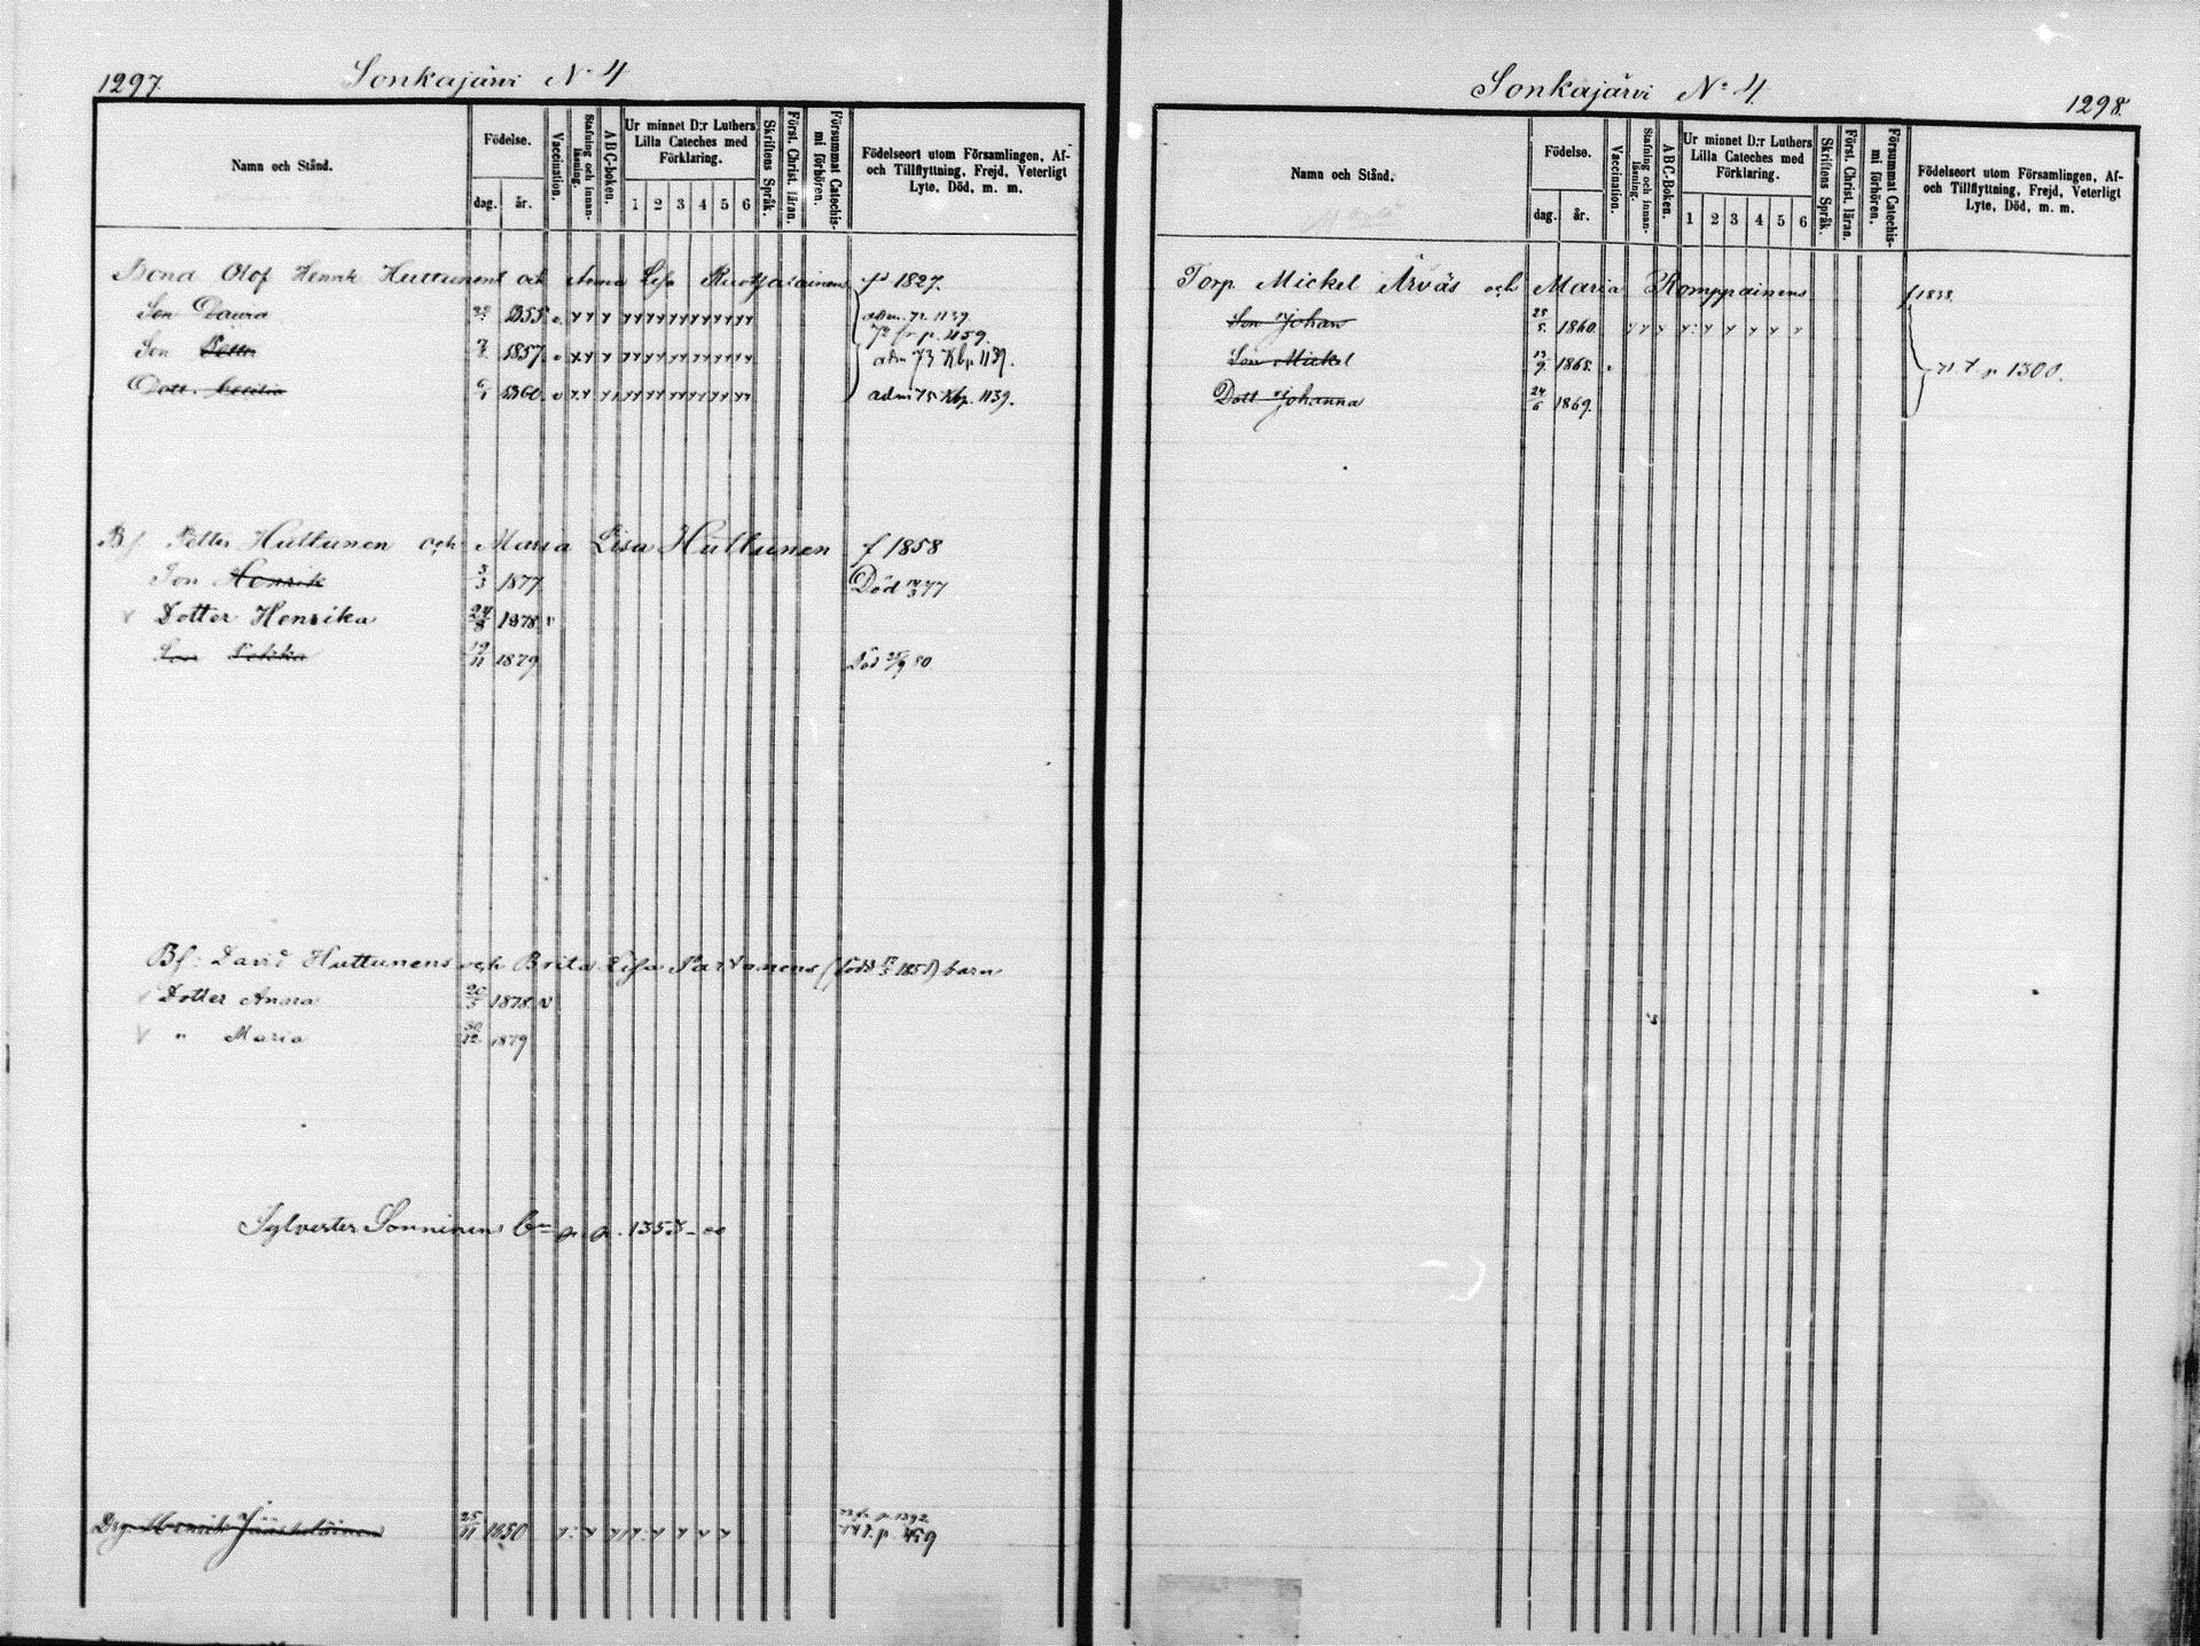 1297.
Sonkajärvi No 4
Namn och Stånd.
Födelse.
dag. år.
Vaccination.
Stafning och innanläsning.
ABC-boken.
Ur minnet D:r Luthers Lilla Cateches med Förklaring.
1 2 3 4 5 6
Skriftens Språk.
Först. Christ. läran.
Försummat Catechismi förhören.
Födelseort utom Församlingen, Af- och Tillflyttning, Frejd, Veterligt Lyte, Död, m. m.
Bond Olof Henrik Huttunens och Anna Lisa 1827.
Son 1855
72 fr p. 1159.
Son Petter 1857 adm 73 Kbp 1139.
Dott. Cecilia 1860 adm 75 Kbp. 1139.
Bf. Petter Huttunen och Maria Lisa Huttunen f 1858
Son Henrik 3/3 1877 Död 77
v Dotter Henrika 24/8 1878 v
Son Pekka 19/11 1879 Död 80
Bf: David Huttunens och Brita Lisa Partanens (född 1858) barn
v Dotter Anna 20/5 1878 v
v " Maria 30/12 1879
Sylvester Sonninens bn p. p. 1353
Drg Henrik Jääskeläinen 25/11 1850 fr p. 1392
t. p. 459
Sonkajärvi No 4.
1298.
Namn och Stånd.
Födelse.
dag. år.
Vaccination.
Stafning och innanläsning.
ABC-Boken.
Ur minnet D:r Luthers Lilla Cateches med Förklaring.
1 2 3 4 5 6
Skriftens Språk.
Först. Christ. läran.
Försummat Catechismi förhören.
Födelseort utom Församlingen, Af- och Tillflyttning, Frejd, Veterligt Lyte, Död, m. m.
Torp. Mickel Ärväs och Maria Romppainens f 1838.
Son Johan 25/5 1860.
Son Mickel 13/9 1865. 71 t. p 1300.
Dott Johanna 24/6 1869.